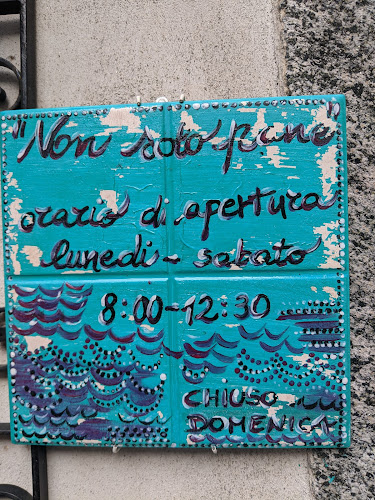 "Non solo pane"
orario di apertura
lunedi - sabato
8:00-12:30
CHIUSO
DOMENICA